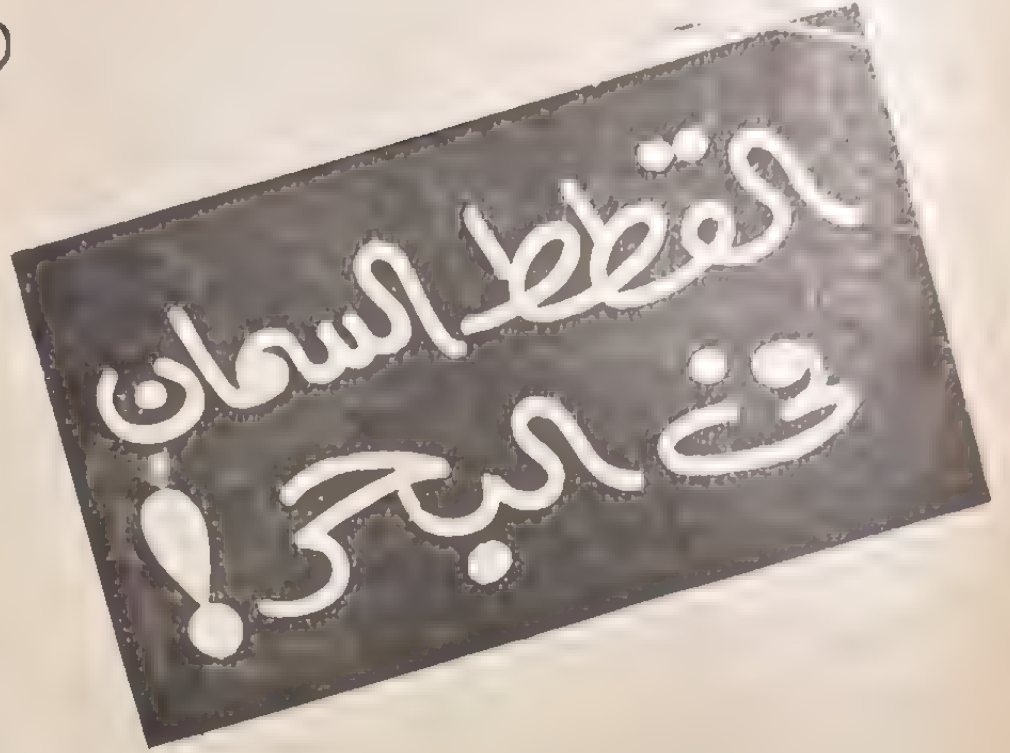 القطط السمان
فى البحر !